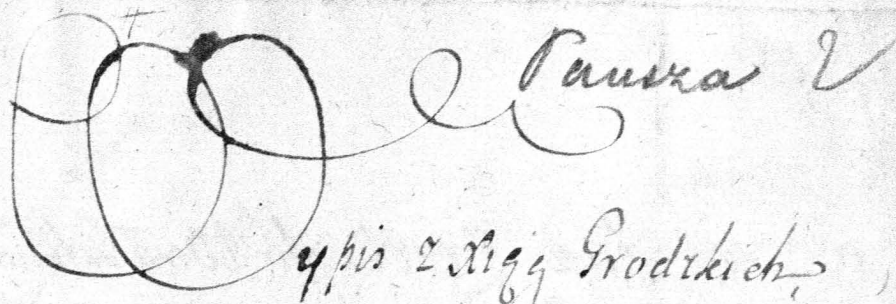 Pausza 2
Wypis z Xiąg Grodzkich,